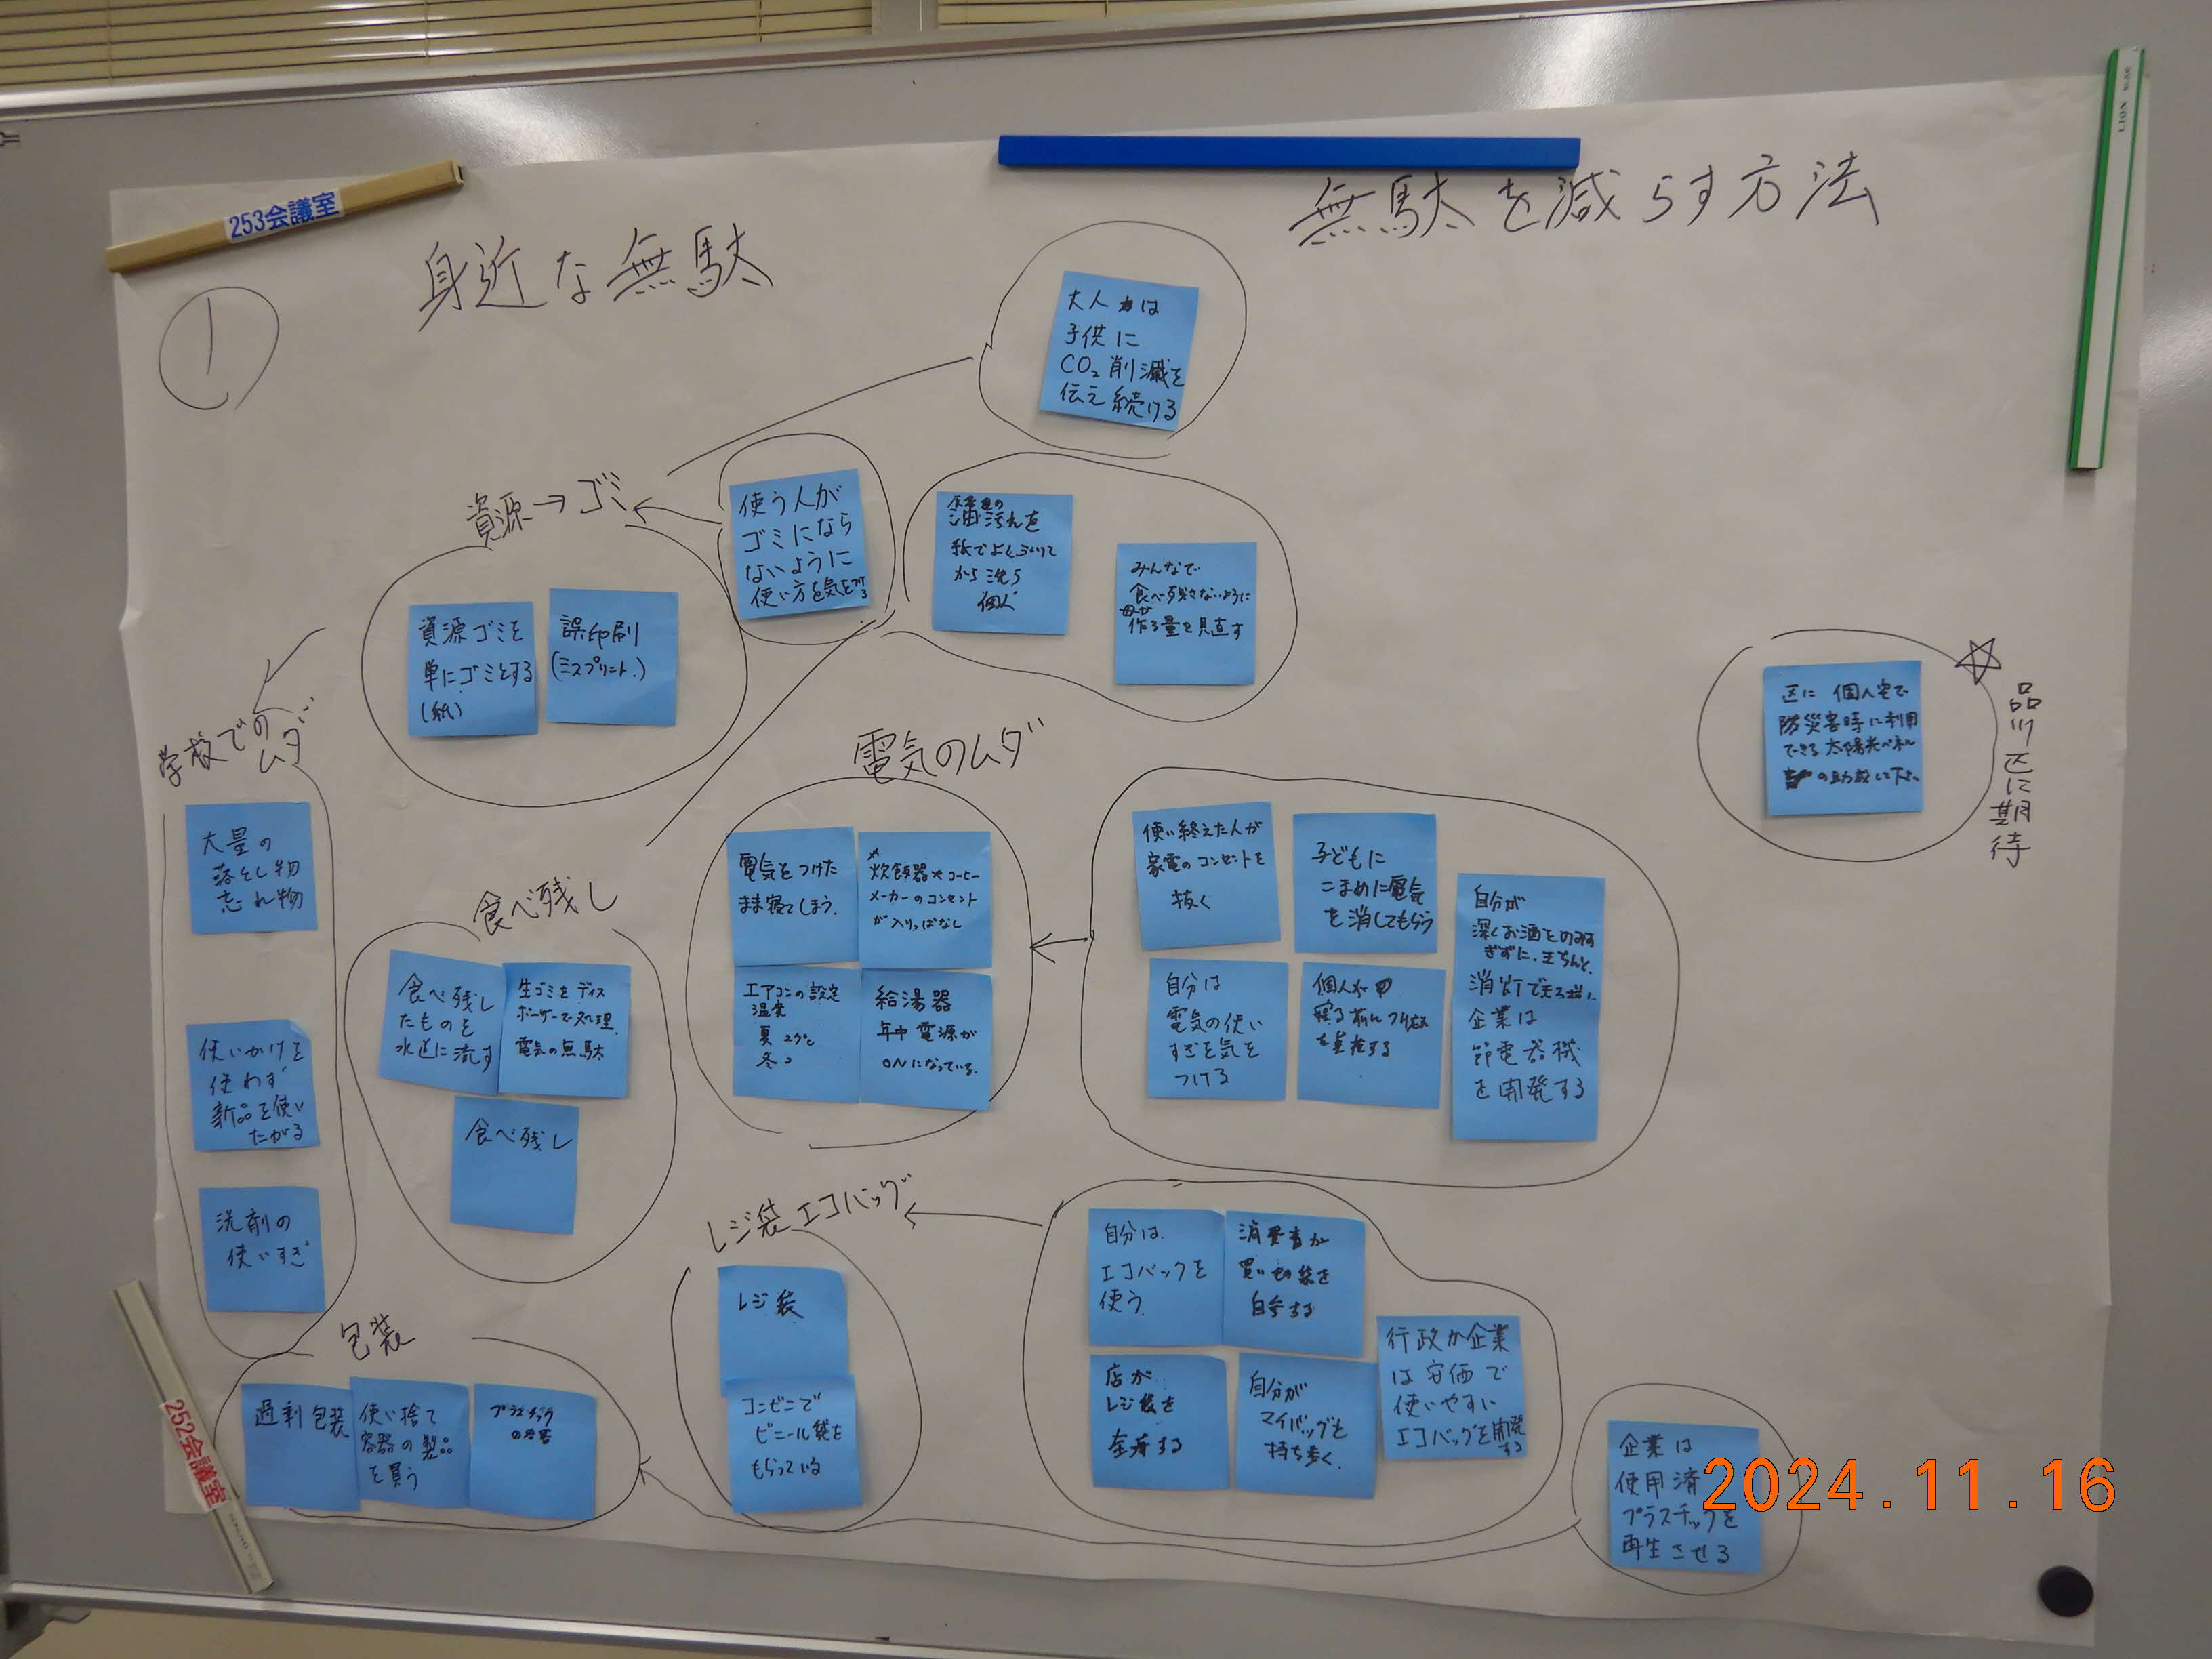 253会議室
LION
①
身近な無駄
無駄を減らす方法
大人は
子供に
CO₂削減を
伝え続ける
資源→ゴミ
使う人が
ゴミになら
ないように
使い方を気を付ける
油汚れを
紙でよくふいて
から洗う
個人
みんなで
食べ残さないように
作る量を見直す
資源ゴミを
単にゴミとする
(紙)
誤印刷
(ミスプリント.)
区に 個人宅で
防災害時に利用
できる太陽光パネル
の助成して下さい
品川区に期待
学校での
ムダ
大量の
落とし物
忘れ物
使いかけを
使わず
新品を使い
たがる
洗剤の
使いすぎ
食べ残し
食べ残し
たものを
水道に流す
生ゴミをディス
ポーザーで処理.
電気の無駄
食べ残し
電気のムダ
電気をつけた
まま寝てしまう.
炊飯器やコーヒー
メーカーのコンセント
が入りっぱなし
エアコンの設定
温度
夏 2
冬 2
給湯器
年中電源が
ONになっている.
使い終えた人が
家電のコンセントを
抜く
子どもに
こまめに電気
を消してもらう
自分は
電気の使い
すぎを気を
つける
個人が
寝る前に
を点検する
自分が
深くお酒をのみす
ぎずに、きちんと、
消灯
企業は
節電器機
を開発する
レジ袋エコバッグ
レジ袋
コンビニで
ビニール袋を
もらっている
自分は
エコバックを
使う.
消費者が
買い物袋を
自参する
店が
レジ袋を
全廃する
自分が
マイバッグを
持ち歩く.
行政か企業
は安価で
使いやすい
エコバッグを開発
する
包装
過剰包装
使い捨て
容器の製品
を買う
プラスチック
の容器
企業は
使用済
プラスチックを
再生させる
252会議室
2024.11.16